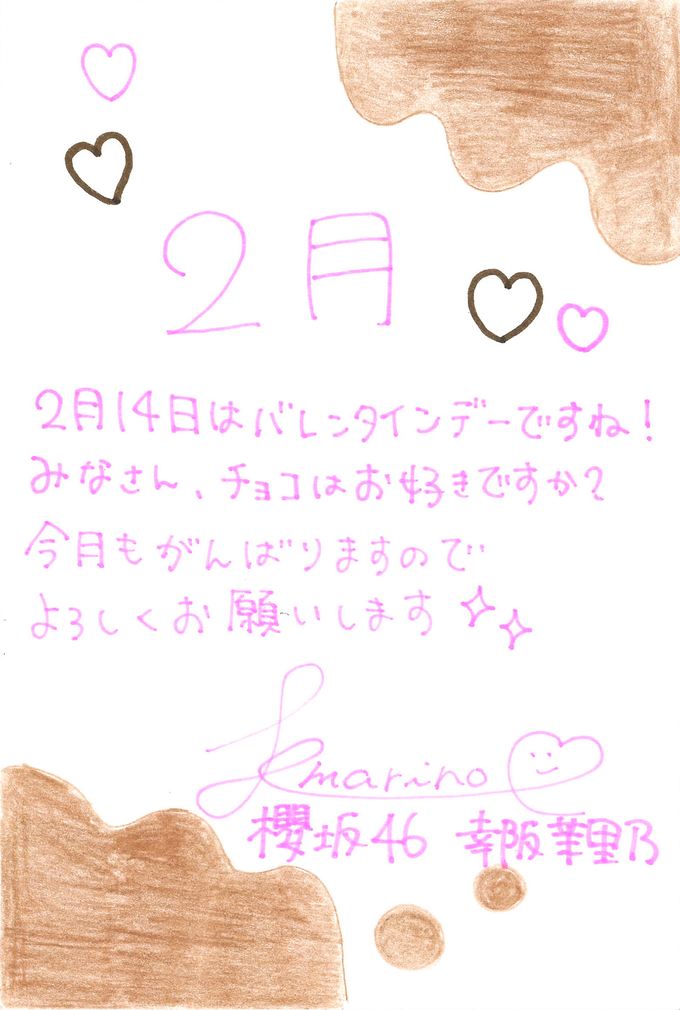 2月
2月14日はバレンタインデーですね!
みなさん、チョコはお好きですか?
今月もがんばりますので
よろしくお願いします
marino
櫻坂46 幸阪茉里乃